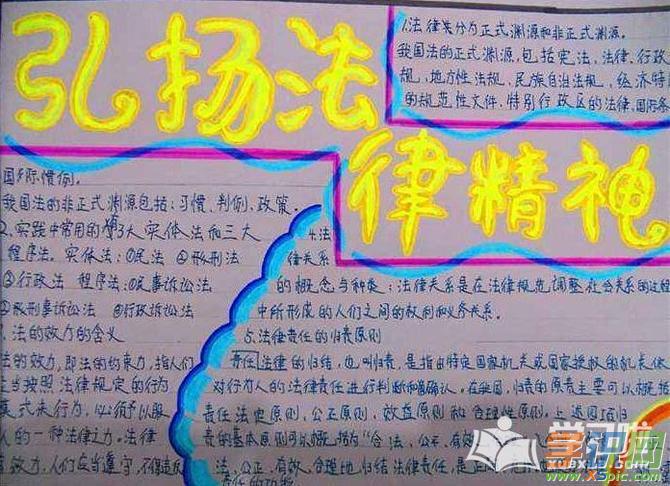 弘扬法
律精神
1.法律共分为正式渊源和非正式渊源。
我国法的正式渊源,包括宪法、法律、行政
规、地方性法规、民族自治法规、经济特
的规范性文件、特别行政区的法律、国际条
国际惯例。
我国法的非正式渊源包括:习惯、判例、政策。
2.实践中常用的3大实体法和三大
程序法。实体法:①民法 ②刑法
③行政法 程序法:①民事诉讼法
②刑事诉讼法 ③行政诉讼法
法的效力的含义
法的效力,即法的约束力,指人们
应当按照法律规定的行为
模式来行为,必须予以服
人的一种法律之力。法律
有效力,人们应当遵守,不得违反
4.法
律关系
的概念与种类:法律关系是在法律规范调整社会关系的过程
中所形成的人们之间的权利和义务关系。
5.法律责任的归责原则
责任法律的归结,也叫归责,是指由特定国家机关或国家授权的机关依
对行为人的法律责任进行判断和确认。在我国,归责的原责主要可以概括
责任法定原则,公正原则,效益原则和合理性原则。上述
责的基本原则可以概括为"合法,公正,有效
法、公正、有效、合理地归结法律责任,是正
责任的功能
学习啦
xuexila.com